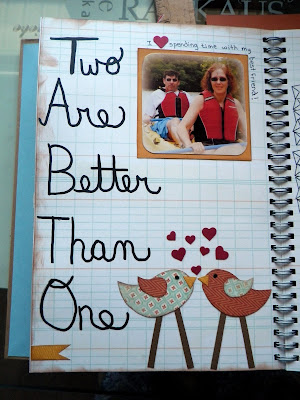 RA KAUS
I ♥ spending time with my
best friend!
Two
Are
Better
Than
One